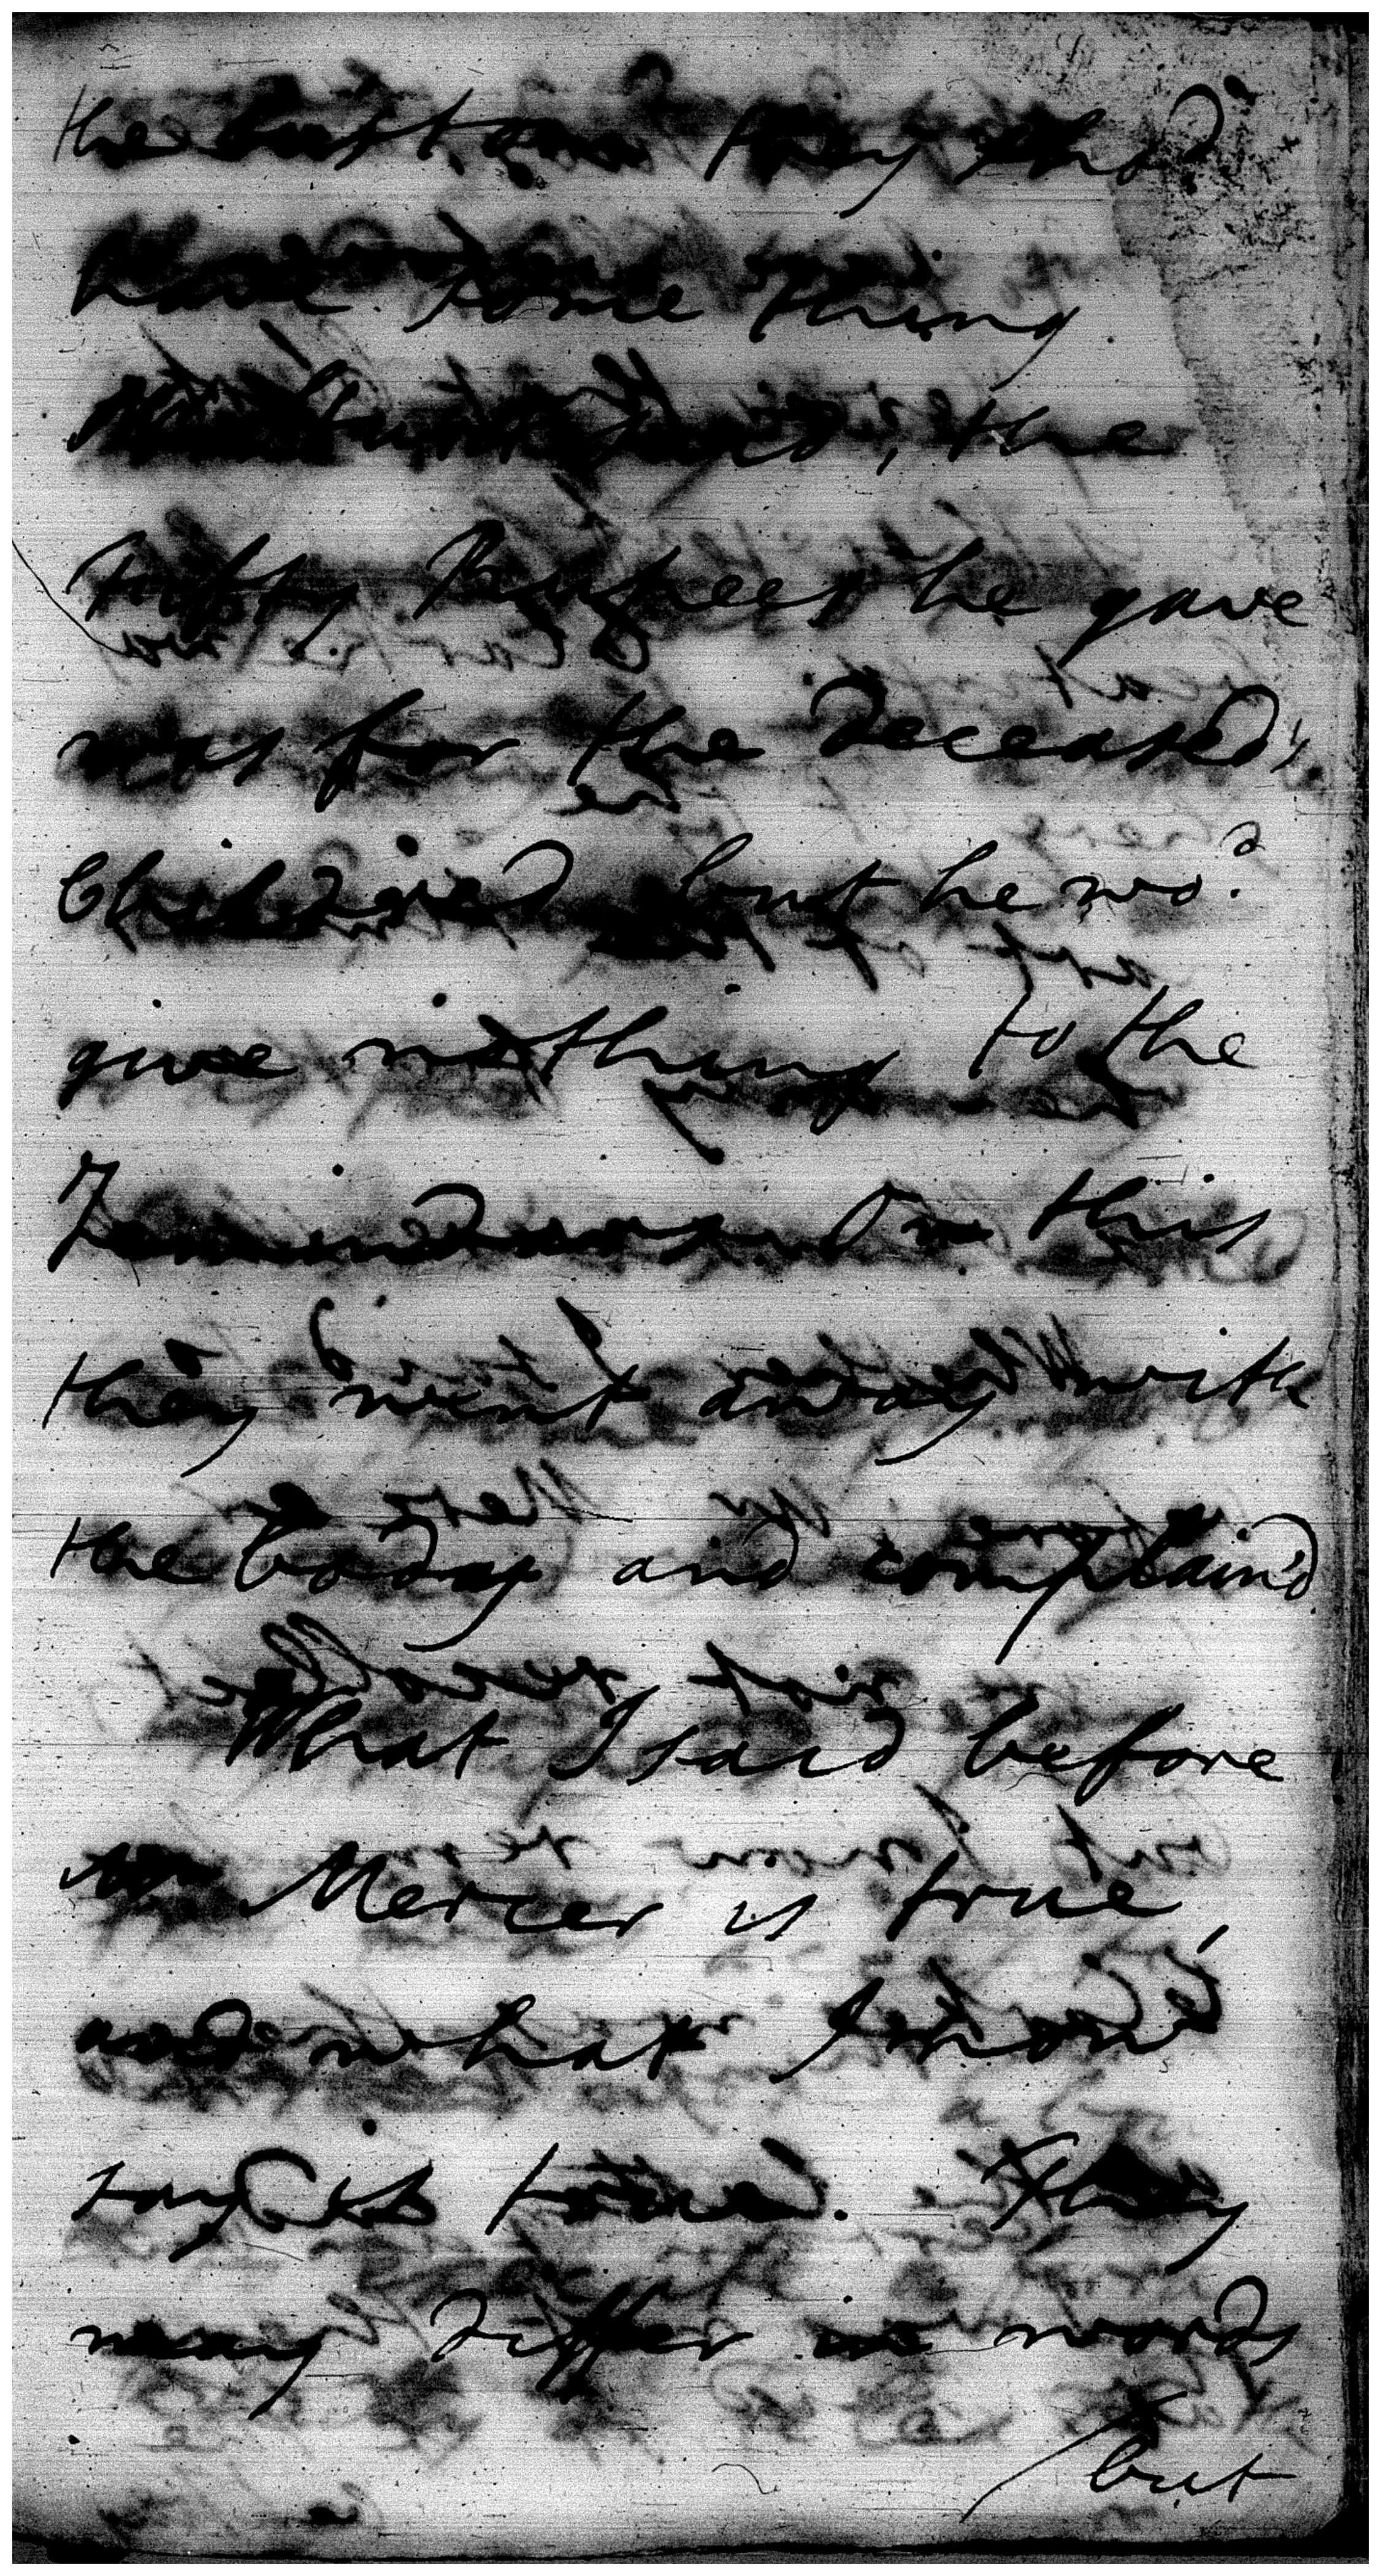 the custom they shod
have some thing
Hunt said, the
Fifty Rupees he gave
was for the deceased,
Children but he wo.d
give nothing to the
Zemindars. On this
they went away with
the body and complain'd
What I said before
Mr Mercer is true,
and what I now
say is true. They
may differ in words
but